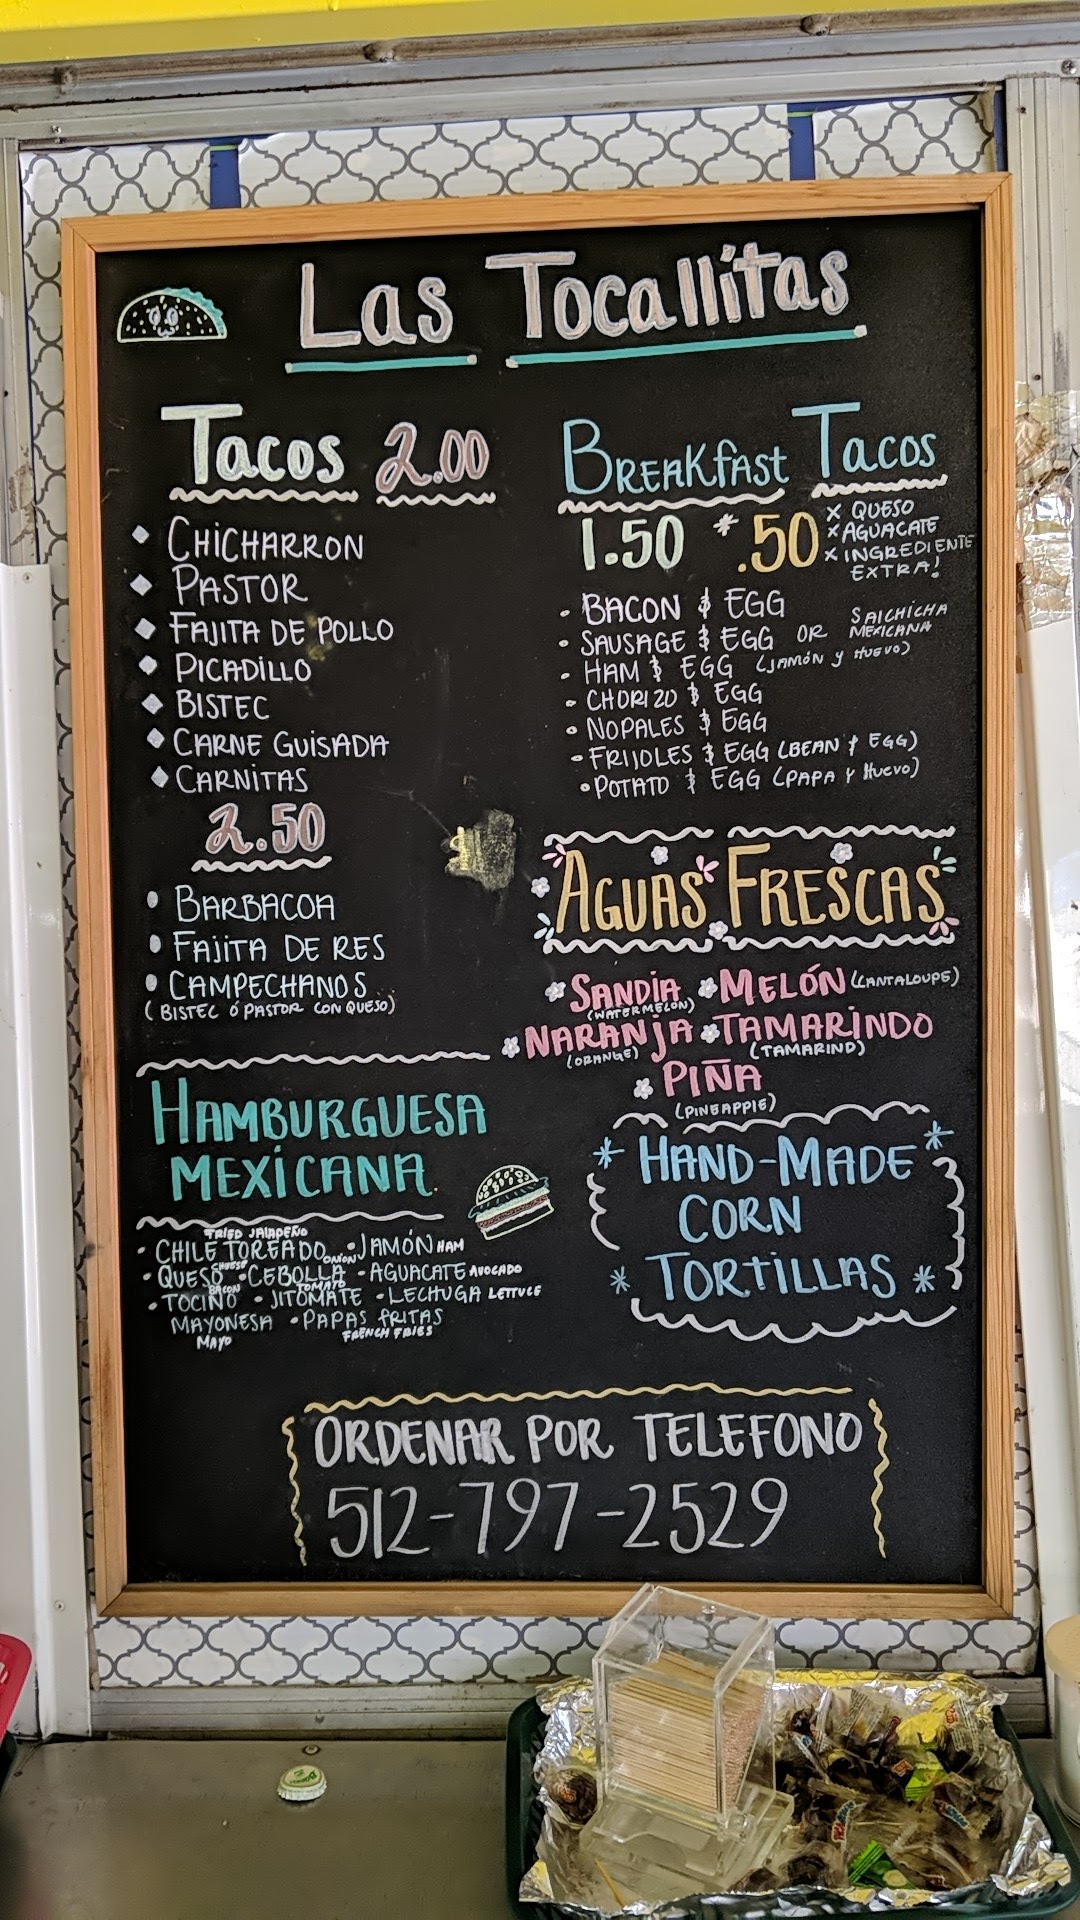 Las Tocallitas
Tacos 2.00
CHICHARRON
PASTOR
FAJITA DE POLLO
PICADILLO
BISTEC
CARNE GUISADA
CARNITAS
2.50
BARBACOA
FAJITA DE RES
CAMPECHANOS
(BISTEC Ó PASTOR CON QUESO)
HAMBURGUESA
MEXICANA
FRIED JALAPEÑO
CHILE TOREADO • JAMÓN HAM
CHEESE ONION
• QUESO • CEBOLLA • AGUACATE AVOCADO
BACON TOMATO
• TOCINO • JITOMATE • LECHUGA LETTUCE
MAYONESA • PAPAS FRITAS
MAYO FRENCH FRIES
BREAKFAST TACOS
1.50 * .50
X QUESO
X AGUACATE
X INGREDIENTE
EXTRA!
- BACON & EGG
- SAUSAGE & EGG OR SALCHICHA
MEXICANA
- HAM & EGG (JAMÓN Y HUEVO)
- CHORIZO & EGG
- NOPALES & EGG
- FRIJOLES & EGG (BEAN & EGG)
• POTATO & EGG (PAPA Y HUEVO)
AGUAS FRESCAS
SANDÍA MELÓN (CANTALOUPE)
(WATERMELON)
NARANJA TAMARINDO
(ORANGE) (TAMARIND)
PIÑA
(PINEAPPLE)
* HAND-MADE *
CORN
* TORTILLAS *
ORDENAR POR TELEFONO
512-797-2529